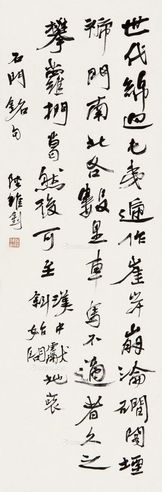 世代綿迴屯夷遞作崖岸崩淪磵閣堙
褫門南北各數里車馬不通者久之
攀蘿捫葛然後可至漢中獻地褒
斜始開
石門銘句 陸維釗